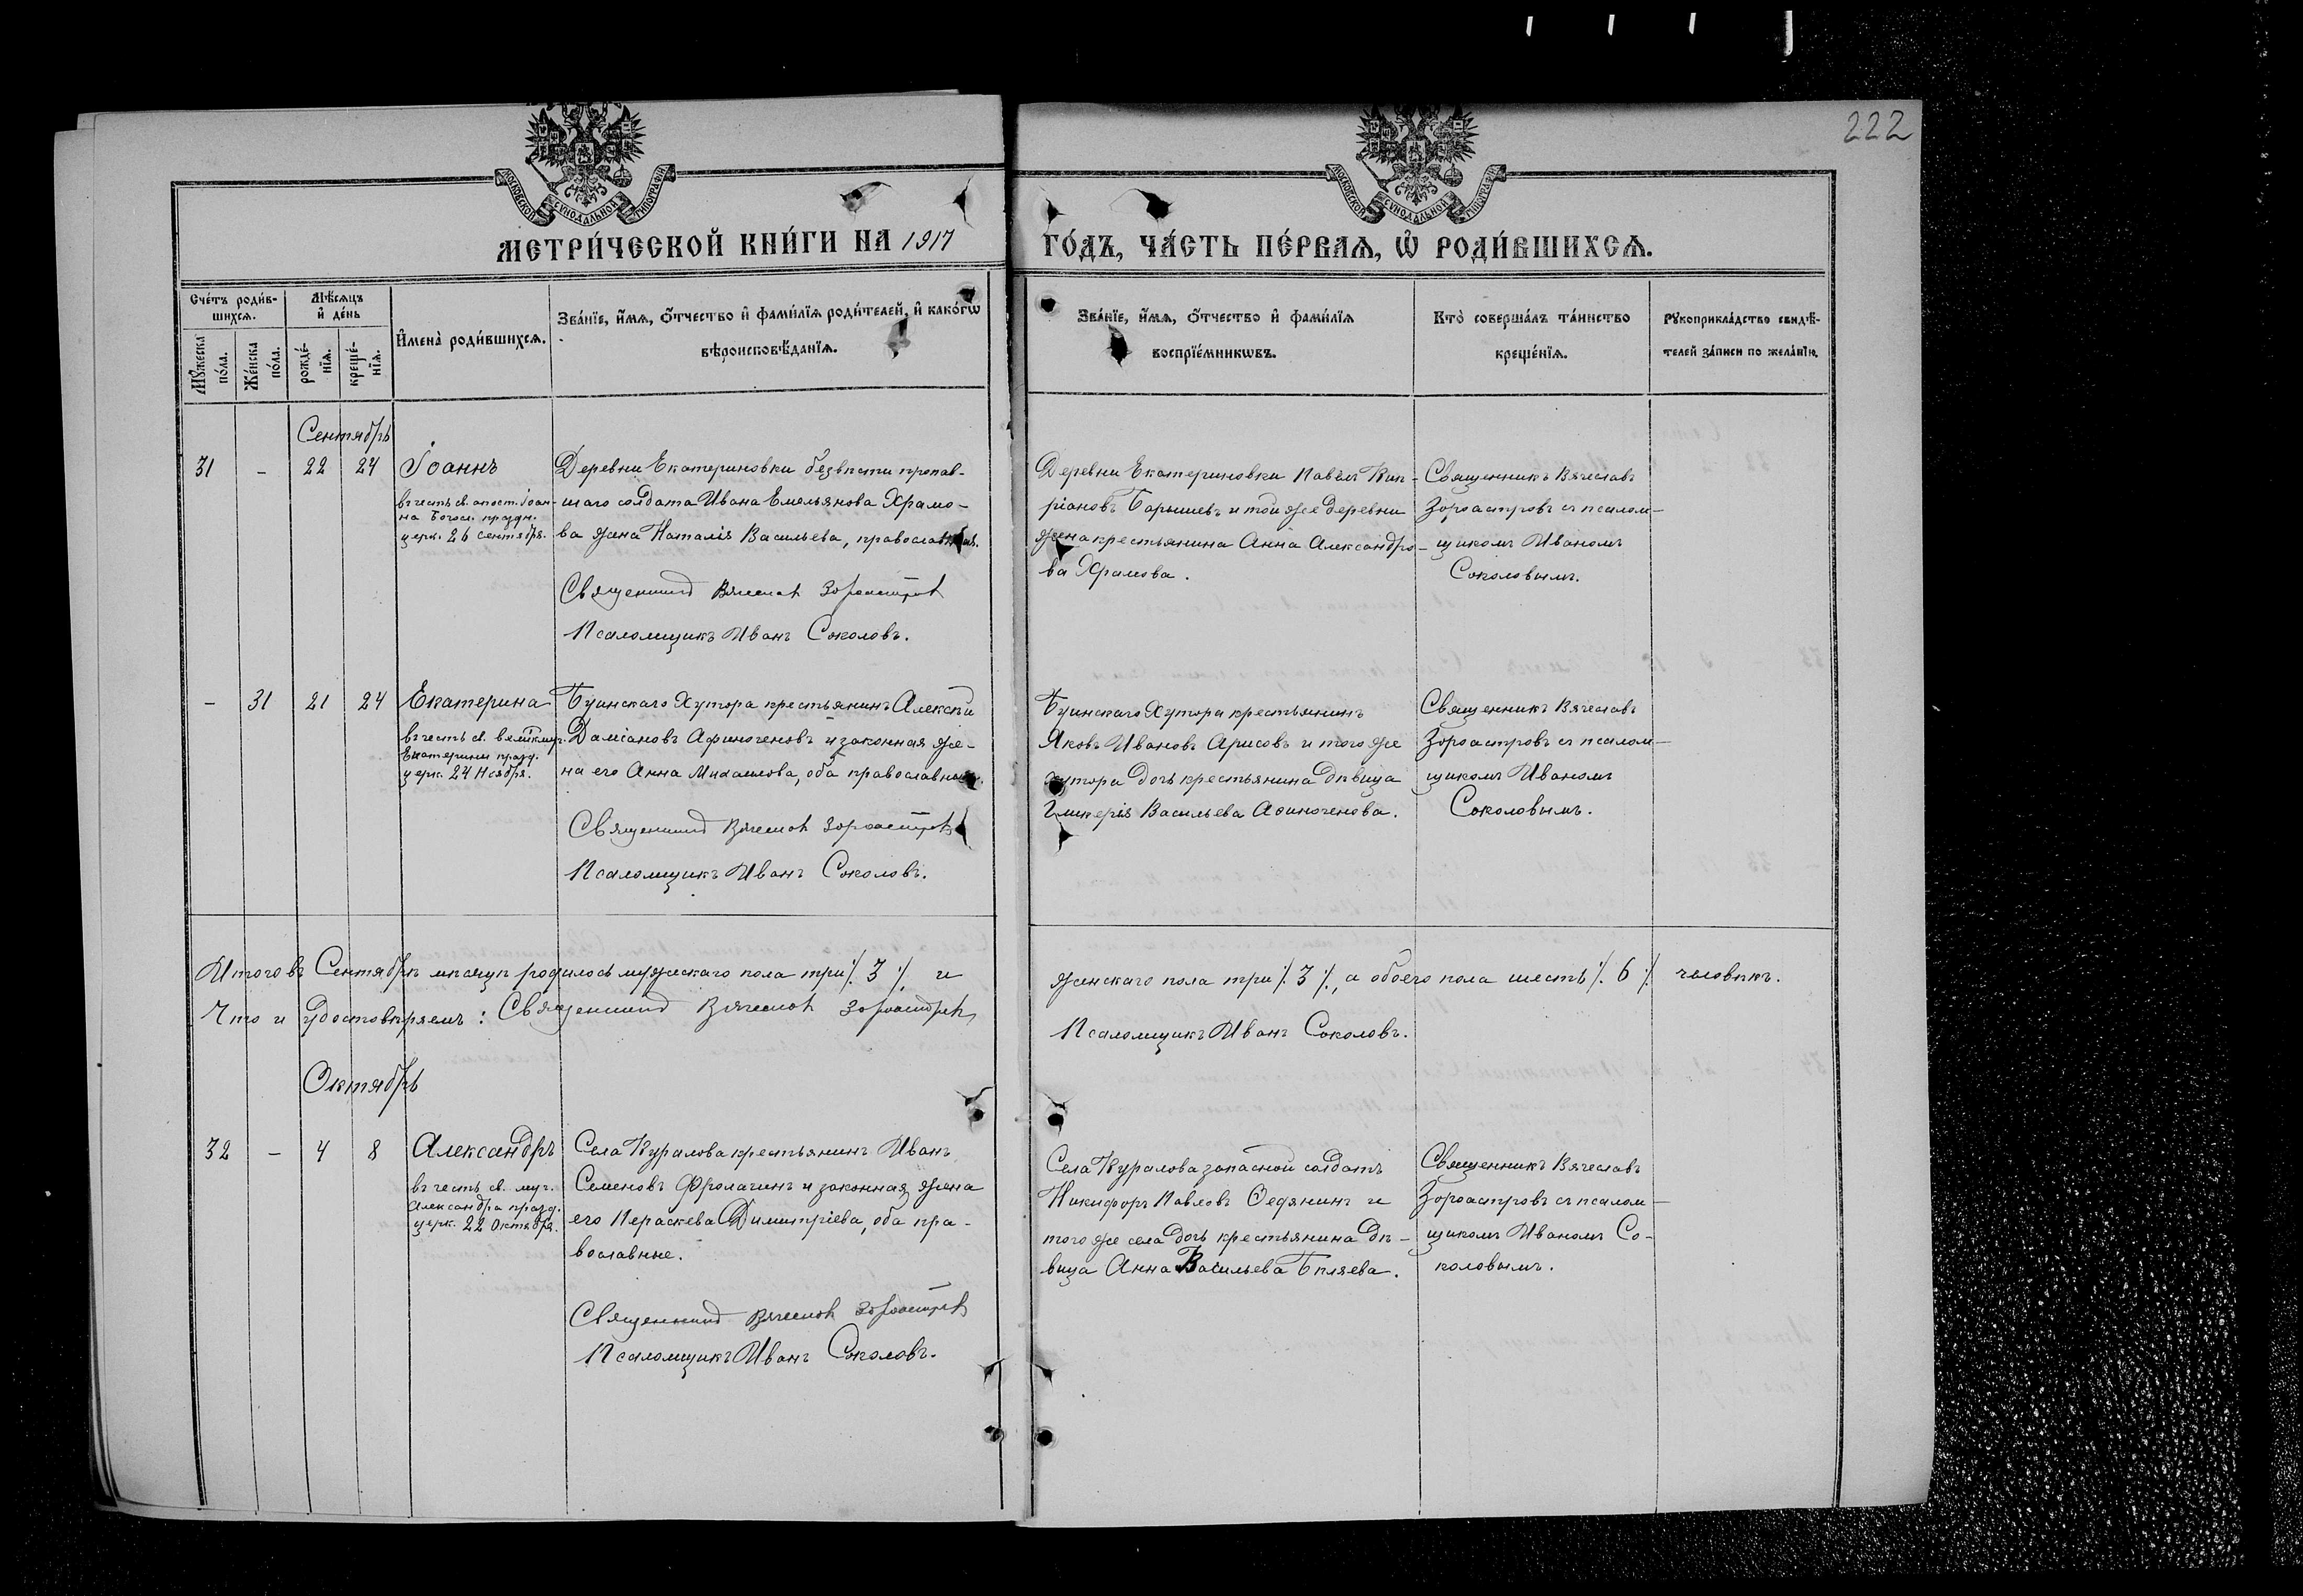 222
МОСКОВСКОЙ СУНОДАЛЬНОЙ ТИПОГРАФІИ
МОСКОВСКОЙ СУНОДАЛЬНОЙ ТИПОГРАФІИ
МЕТРИ́ЧЕСКОЙ КНИ́ГИ НА 1917
ГО́ДЪ, ЧА́СТЬ ПЕ́РВАѦ, Ѡ҆ РОДИ́ВШИХСѦ.
Сче́тъ роди́в-
шихсѧ.
Мѣ́сѧцъ
и҆ де́нь
Мꙋ́жеска
по́ла.
Же́нска
по́ла.
рожде́-
нїѧ.
креще́-
нїѧ.
И҆мена̀ роди́вшихсѧ.
Зва́нїе, и҆́мѧ, ѻ҆́тчество и҆ фами́лїѧ роди́телей, и҆ како́гѡ
вѣроисповѣ́данїѧ.
Зва́нїе, и҆́мѧ, ѻ҆́тчество и҆ фами́лїѧ
воспрїе́мникѡвъ.
Кто̀ соверша́лъ та́инство
креще́нїѧ.
Рꙋкоприкла́дство свидѣ́-
телей за́писи по жела́нїю.
Сентябрь
31 - 22 24 Іоаннъ
въ честь св. апост. Іоан-
на Богосл. праздн.
церк. 26 сентября.
Деревни Екатериновки безвѣсти пропав-
шаго солдата Ивана Емельянова Храмо-
ва жена Наталія Васильева, православная.
Священникъ Вячеславъ Зороастровъ
Псаломщикъ Иванъ Соколовъ.
Деревни Екатериновки Павелъ Кип-
ріановъ Барышевъ и той же деревни
жена крестьянина Анна Александро-
ва Храмова.
Священникъ Вячеславъ
Зороастровъ съ псалом-
щикомъ Иваномъ
Соколовымъ.
- 31 21 24 Екатерина
въ честь св. великмуч.
Екатерины празд.
церк. 24 Ноября.
Буинскаго Хутора крестьянинъ Алексѣй
Даміановъ Афиногеновъ и законная же-
на его Анна Михаилова, оба православные.
Священникъ Вячеславъ Зороастровъ
Псаломщикъ Иванъ Соколовъ.
Буинскаго Хутора крестьянинъ
Яковъ Ивановъ Арисовъ и того же
хутора дочь крестьянина дѣвица
Гликерія Васильева Афиногенова.
Священникъ Вячеславъ
Зороастровъ съ псалом-
щикомъ Иваномъ
Соколовымъ.
Итого въ Сентябрѣ мѣсяцѣ родилось мужескаго пола три /. 3 /. и
женскаго пола три /. 3 /., а обоего пола шесть /. 6 /. человѣкъ.
Что и удостовѣряемъ: Священникъ Вячеславъ Зороастровъ
Псаломщикъ Иванъ Соколовъ.
Октябрь
32 - 4 8 Александръ
въ честь св. муч.
Александра празд.
церк. 22 Октября.
Села Куралова крестьянинъ Иванъ
Семеновъ Фролагинъ и законная жена
его Параскева Димитріева, оба пра-
вославные.
Священникъ Вячеславъ Зороастровъ
Псаломщикъ Иванъ Соколовъ.
Села Куралова запасной солдатъ
Никифоръ Павловъ Ѳедянинъ и
того же села дочь крестьянина дѣ-
вица Анна Васильева Бѣляева.
Священникъ Вячеславъ
Зороастровъ съ псалом-
щикомъ Иваномъ Со-
коловымъ.